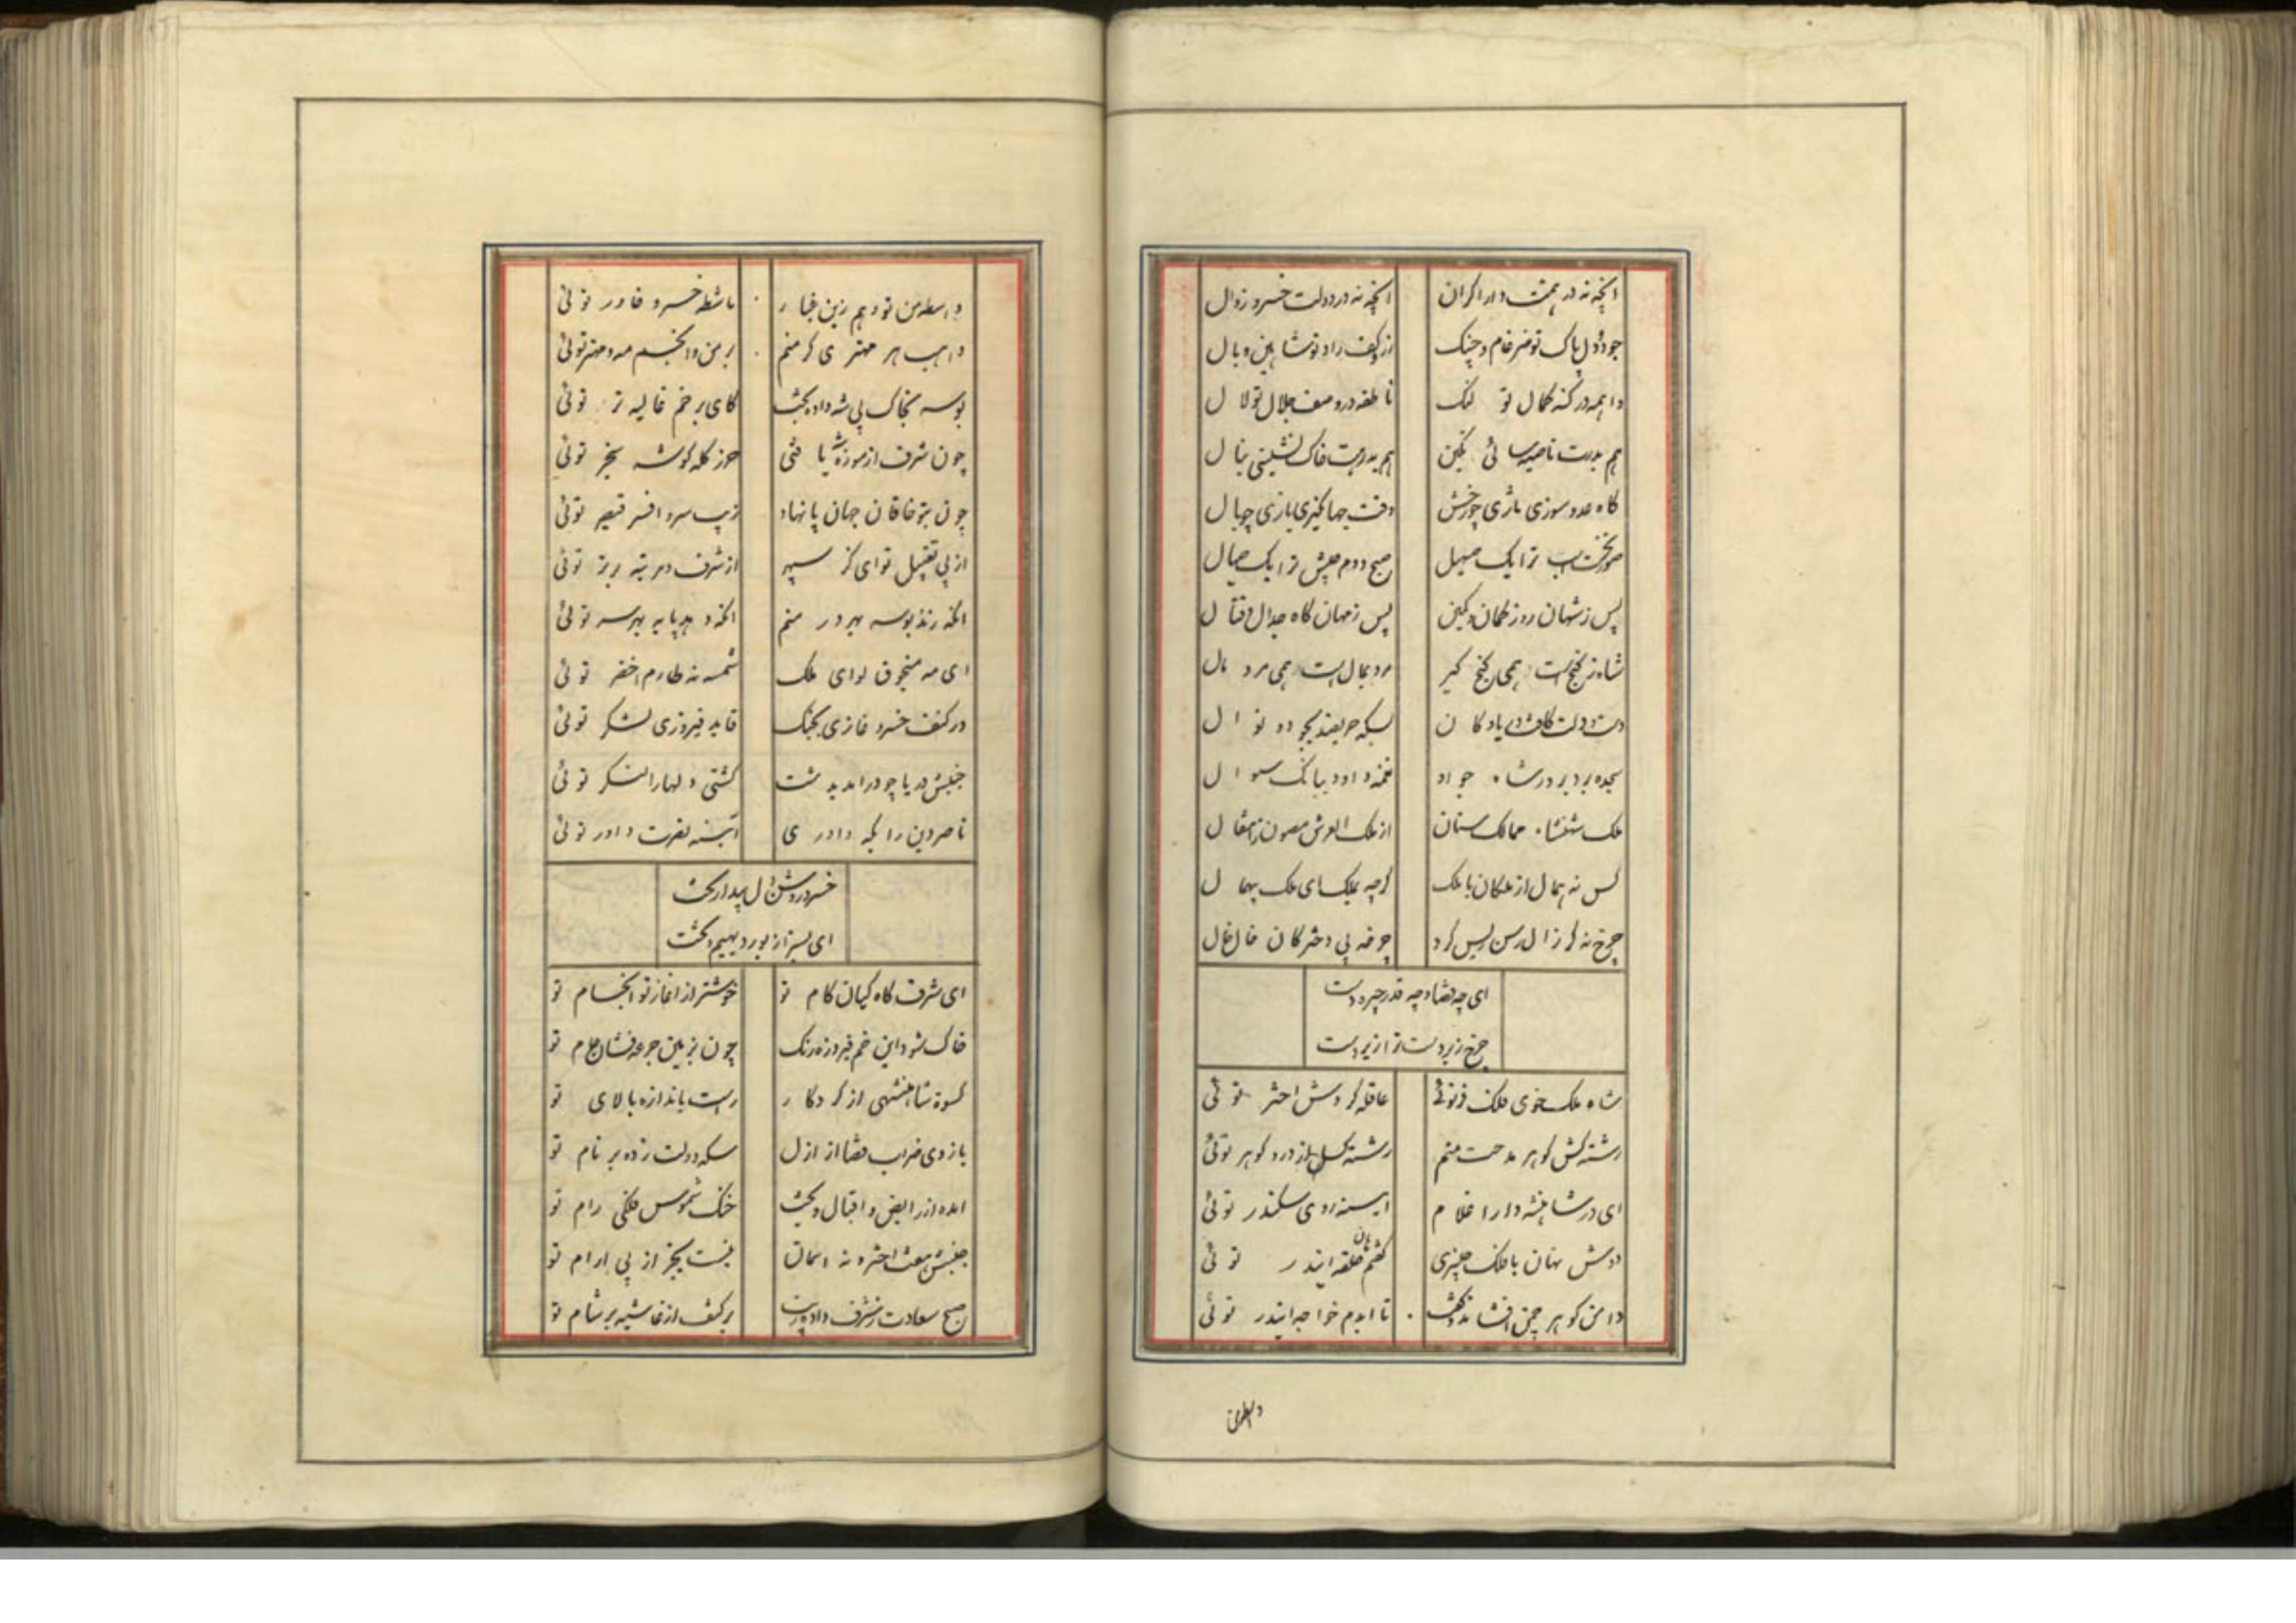 انچه نه در همت دارا کران انچه نه در دولت خسرو زوال
جود دل پاک تو ضرغام و چنک از کف راد تو شاهین و بال
واهمه در کنه کمال تو لنک ناطقه در وصف جلال تو لال
هم بدرت ناصیه سائی نکین هم بدرت خاک نشینی ینال
کاه عدو سوزی بازی چو رخش وقت جهانکیری یازی چو بال
صور نخست اسب ترا یک صهیل صبح دوم جیش ترا یک خیال
پس ز شهان روز کمان و کمین پس ز مهان کاه جدال و قتال
شاه ز کنج است همی کنج کیر مرد بمال است همی مرد مال
دست و دلت کافت دریا و کان بسکه حریفند بجود و نوال
سجده برد بر در شاه جواد نغمه داود ببانک سوال
ملک شهنشاه ممالک ستان از ملک العرش مصون از مقال
کس نه همال از ملکان با ملک کرچه بملک ای ملک بیهمال
چرخ نه کر زال رسن ریس کرد چرخه پی دخترکان خال خال
ای چه قضا و چه قدر چیره دست
چرخ زبردست ترا زیردست
شاه ملک خوی فلک فر توئی عاقله کردش اختر توئی
رشته کش کوهر مدحت منم رشته کسل از در و کوهر توئی
ای در شاهنشه دارا غلام ایینه روی سکندر توئی
دوش نهان با فلک چنبری کفتم هان حلقه ایندر توئی
دامن کوهر چمن افشاند و کفت تا ابدم خواجه ایندر توئی
واسطه من تو و هم زین غبار ماشطه خسرو خاور توئی
واهب هر مهتری کر منم بر من و انجم مه و مهتر توئی
بوسه بخاک پی شه داد و کفت کای برخم غالیه تر توئی
چون شرف از موزه شه یافتی حرز کله کوشه سنجر توئی
چون بتو خاقان جهان پا نهاد زیب سر و افسر قیصر توئی
از پی تقبیل تو ای کز سپهر از شرف و مرتبه برتر توئی
انکه زند بوسه بهر در منم انکه دهد پایه بهر سر توئی
ای مه منجوق لوای ملک شمسه نه طارم اخضر توئی
در کنف خسرو غازی بجنک قاید فیروزی لشکر توئی
جنبش دریا چو درامد بدشت کشتی و لهارا لنکر توئی
ناصر دین را بکه داوری آینه نصرت داور توئی
خسرو روشن دل بیدار بخت
ای بسزا زیور دیهیم و تخت
ای شرف کاه کیان کام تو خوشتر از اغاز تو انجام تو
خاک شود این خم فیروزه رنک چون بزمین جرعه فشان جام تو
کسوة شاهنشهی از کردکار راست باندازه بالای تو
بازوی ضراب قضا از ازل سکه دولت زده بر نام تو
امده از رایض و اقبال و بخت خنک شموس فلکی رام تو
جنبش هفت اختر و نه اسمان نیست بجز از پی ارام تو
صبح سعادت ز شرف داد برکتف از غاشیه بر شام تو